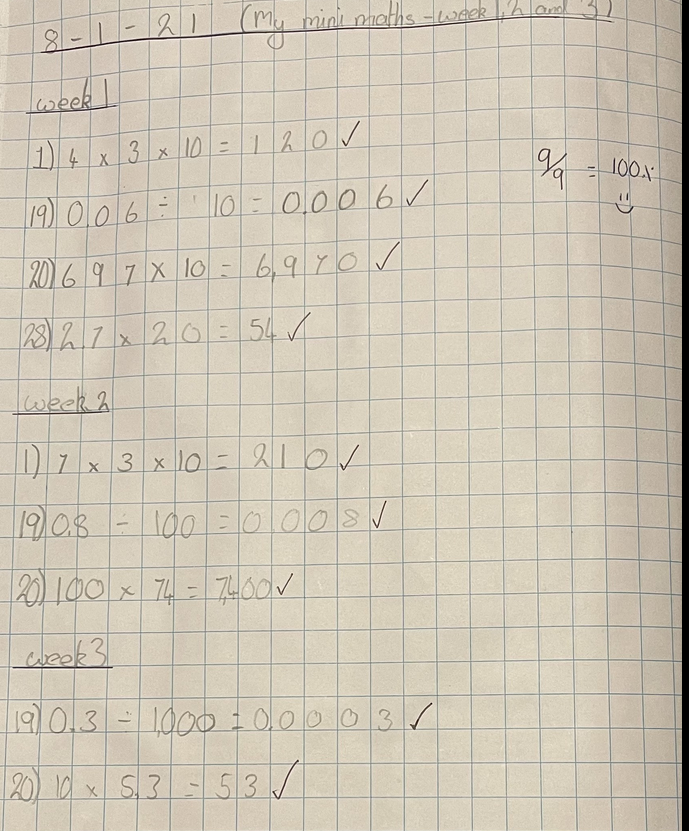 8-1-21 (My mini maths-week 1, 2 and 3)
week 1
1) 4 x 3 x 10 = 120 ✓
9/9 = 100%
19) 0.06 ÷ 10 = 0.006 ✓
:)
20) 697 x 10 = 6,970 ✓
28) 27 x 20 = 54 ✓
week 2
1) 7 x 3 x 10 = 210 ✓
19) 0.8 ÷ 100 = 0.008 ✓
20) 100 x 74 = 7,400 ✓
week 3
19) 0.3 ÷ 1,000 = 0.0003 ✓
20) 10 x 5.3 = 53 ✓